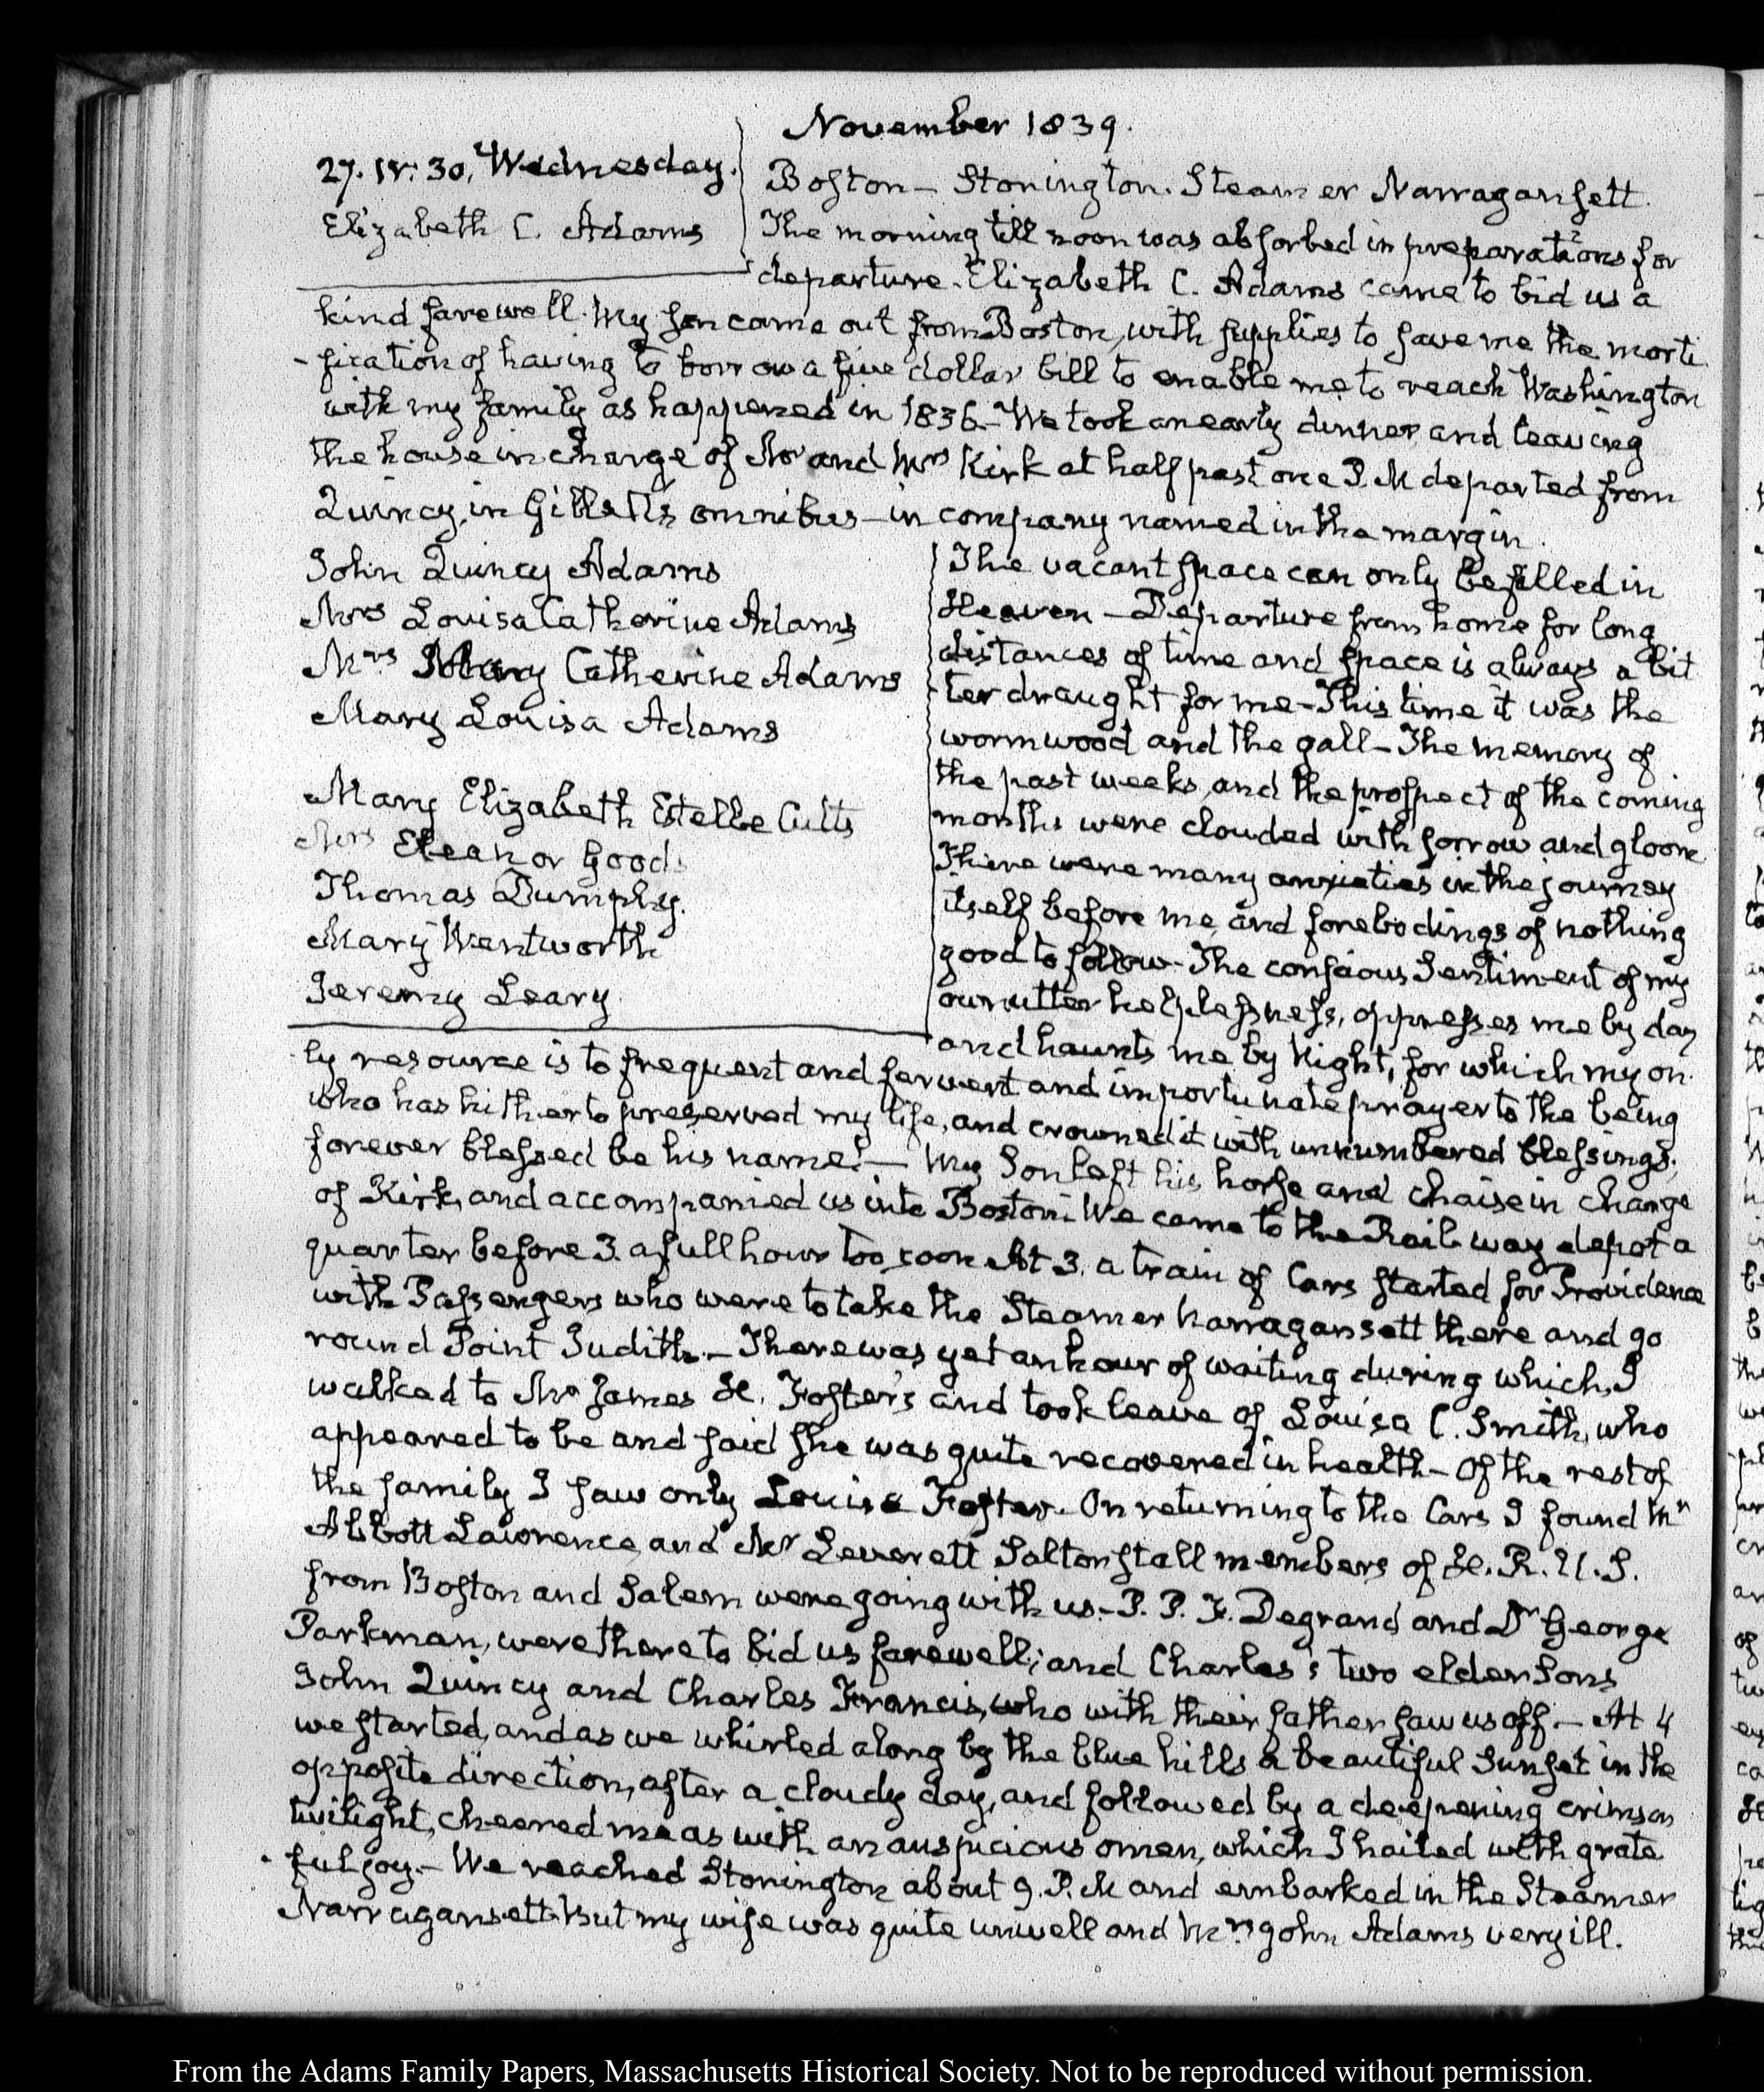 November 1839.
27. IV: 30. Wednesday.
Elizabeth C. Adams
Boston – Stonington. Steamer Narragansett.
The morning till noon was absorbed in preparations for
departure. Elizabeth C. Adams came to bid us a
kind farewell. My son came out from Boston, with supplies to save me the morti
-fication of having to borrow a five dollar bill to enable me to reach Washington
with my family as happened in 1836 – We took an early dinner and leaving
the house in charge of Mr and Mrs Kirk at half past one P.M departed from
Quincy, in Gillett's omnibus – in company named in the margin.
John Quincy Adams
Mrs Louisa Catherine Adams
Mrs Mary Catherine Adams
Mary Louisa Adams
Mary Elizabeth Estelle Cutts
Mrs Eleanor Goods
Thomas Dumphy.
Mary Wentworth
Jeremy Leary
The vacant space can only be filled in
Heaven – Departure from home for long
distances of time and space is always a bit
-ter draught for me – This time it was the
wormwood and the gall – The memory of
the past weeks, and the prospect of the coming
months were clouded with sorrow and gloom
There were many anxieties in the journey
itself before me, and forebodings of nothing
good to follow – The conscious Sentiment of my
own utter helplessness, oppresses me by day
and haunts me by Night, for which my on
-ly resource is to frequent and fervent and importunate prayer to the being
who has hitherto preserved my life, and crowned it with unnumbered blessings;
forever blessed be his name! – My Son left his horse and chaise in charge
of Kirk, and accompanied us into Boston. We came to the Rail way depot a
quarter before 3. a full hour too soon At 3. a train of Cars started for Providence
with Passengers who were to take the Steamer Narragansett there and go
round Point Judith. – There was yet an hour of waiting during which, I
walked to Mr James H. Foster's and took leave of Louisa C. Smith, who
appeared to be and said she was quite recovered in health – Of the rest of
the family I saw only Louisa Foster. On returning to the Cars I found Mr
Abbott Lawrence, and Mr Leverett Saltonstall members of H. R. U. S.
from Boston and Salem were going with us – P. P. F. Degrand and Dr George
Parkman, were there to bid us farewell; and Charles's two elder sons
John Quincy and Charles Francis, who with their father saw us off. – At 4
we started, and as we whirled along by the blue hills a beautiful Sunset in the
opposite direction, after a cloudy day, and followed by a deepening crimson
twilight, cheered me as with an auspicious omen, which I hailed with grate
-ful joy. – We reached Stonington about 9. P.M and embarked in the Steamer
Narragansett. But my wife was quite unwell and Mrs John Adams very ill.
From the Adams Family Papers, Massachusetts Historical Society. Not to be reproduced without permission.